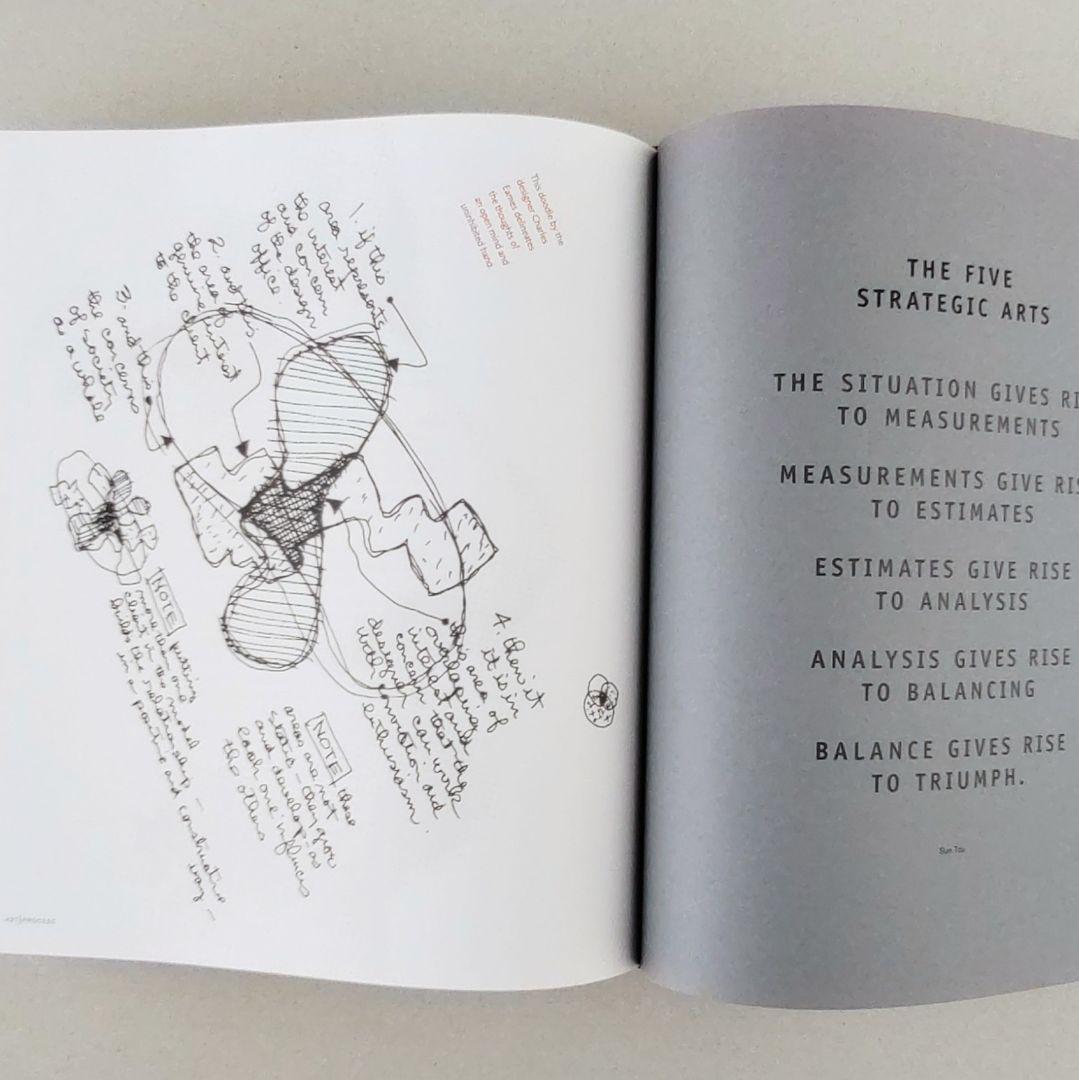 This doodle by the
designer Charles
Eames delineates
the thoughts of
an open mind and
uninhibited hand.
1. if this
area represents
the interest
and concern
of the design
office.
2. and this
the area of
genuine interest
to the client
3. and this
the concerns
of society
as a whole
4. then it
it is in
this area of
overlapping
interest and
concern that the
designer can work
with conviction and
enthusiasm.
NOTE these
areas are not
static – they grow
and develop – as
each one influences
the others
NOTE putting
more than one
client in the model
builds the relationship –
in a positive and constructive
way –
THE FIVE
STRATEGIC ARTS
THE SITUATION GIVES RI
TO MEASUREMENTS
MEASUREMENTS GIVE RIS
TO ESTIMATES
ESTIMATES GIVE RISE
TO ANALYSIS
ANALYSIS GIVES RISE
TO BALANCING
BALANCE GIVES RISE
TO TRIUMPH.
Sun Tzu